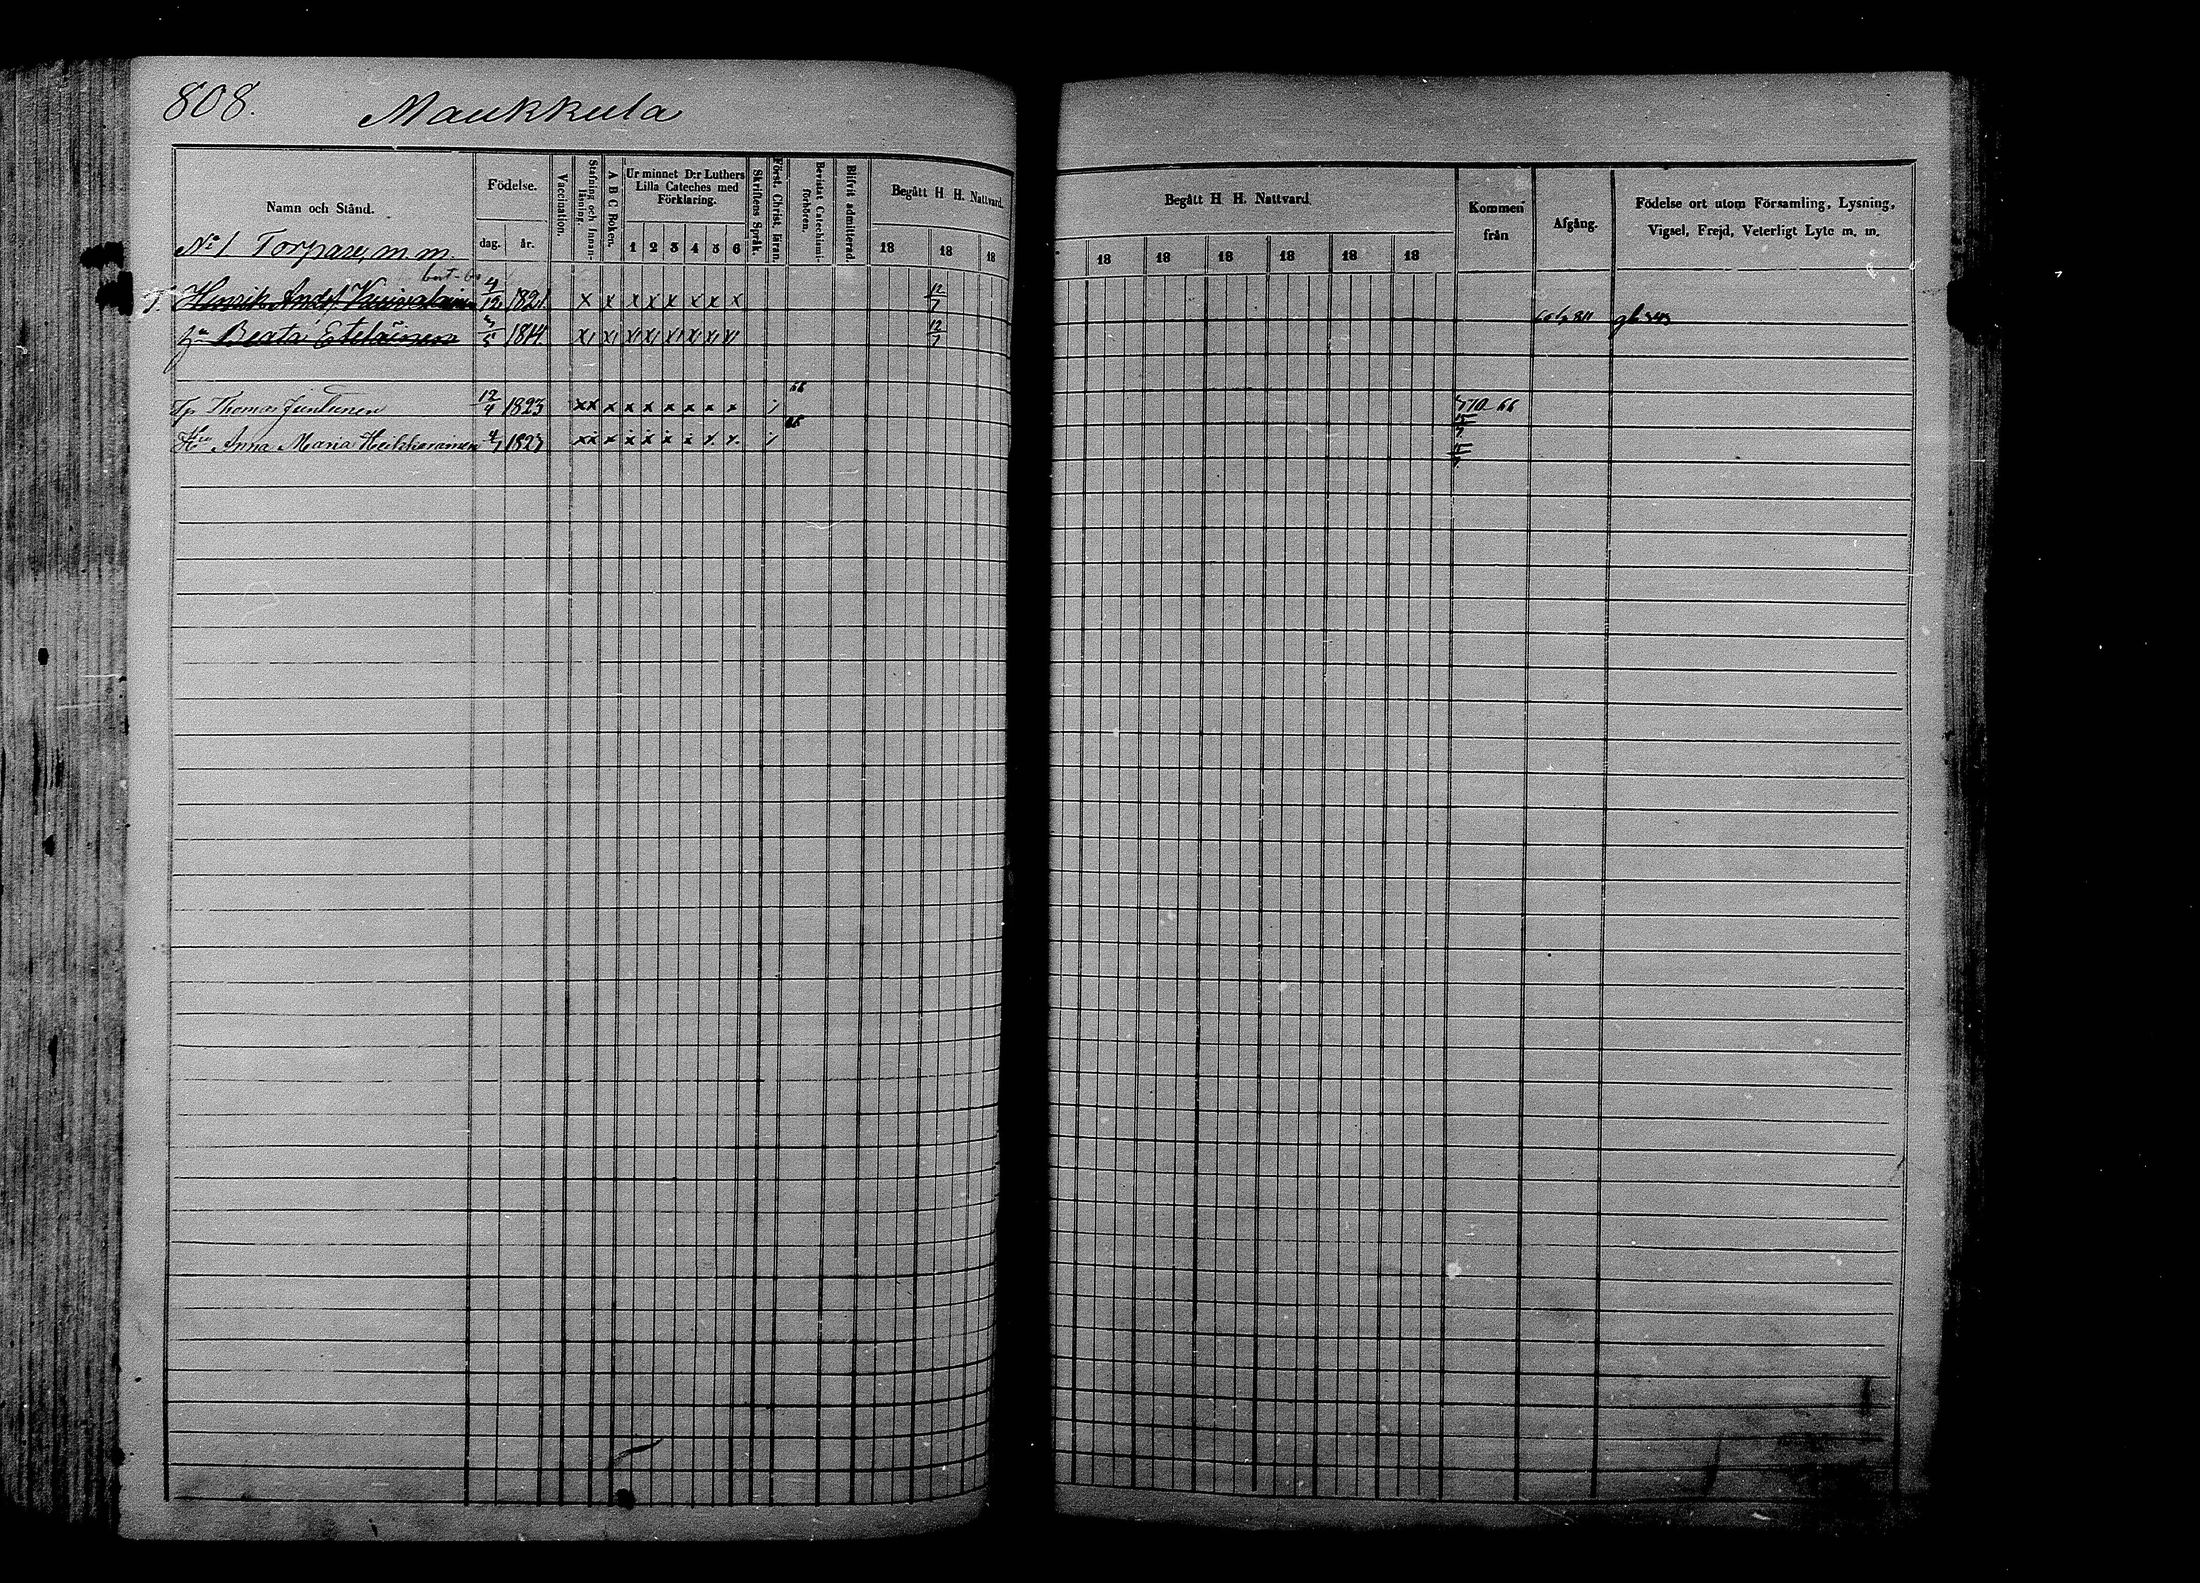 808.
Maukkula
Namn och Stånd.
Födelse.
dag. år.
Vaccination.
Stafning och Innan-
läsning.
A B C Boken.
Ur minnet D:r Luthers
Lilla Cateches med
Förklaring.
1 2 3 4 5 6
Skriftens Språk.
Först. Christ. läran.
Bevistat Catechismi-
förhören.
Blifvit admitterad.
Begått H H. Nattvard.
18 18 18
Begått H H. Nattvard.
18 18 18 18 18 18
Kommen
från
Afgång.
Födelse ort utom Församling, Lysning,
Vigsel, Frejd, Veterligt Lyte m. m.
No 1 Torpare, m m.
T. Henrik Andr 4/12 1821 x x x x x x x x 12/7
Beata Eteläinen 1814 12/7
Tp Thomas Juntunen 12/4 1823 xx x x x x x x x 66 770 66
Anna Maria Heikkerainen 1823 66